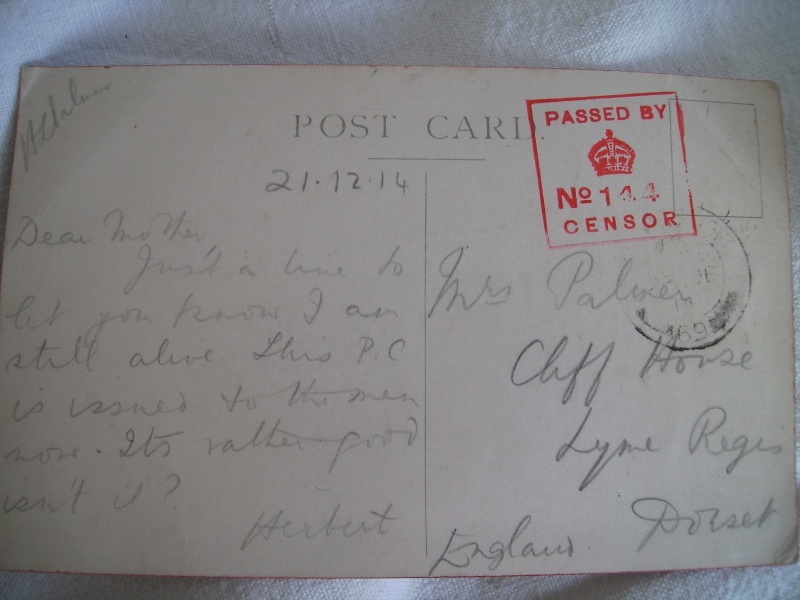 POST CARD.
PASSED BY
Nº 144
CENSOR
21.12.14
Dear Mother
Just a line to
let you know I am
still alive. This P.C
is issued to the men
now. Its rather good
isn't it?
Herbert
Mrs Palmer
Cliff House
Lyme Regis
Dorset
England